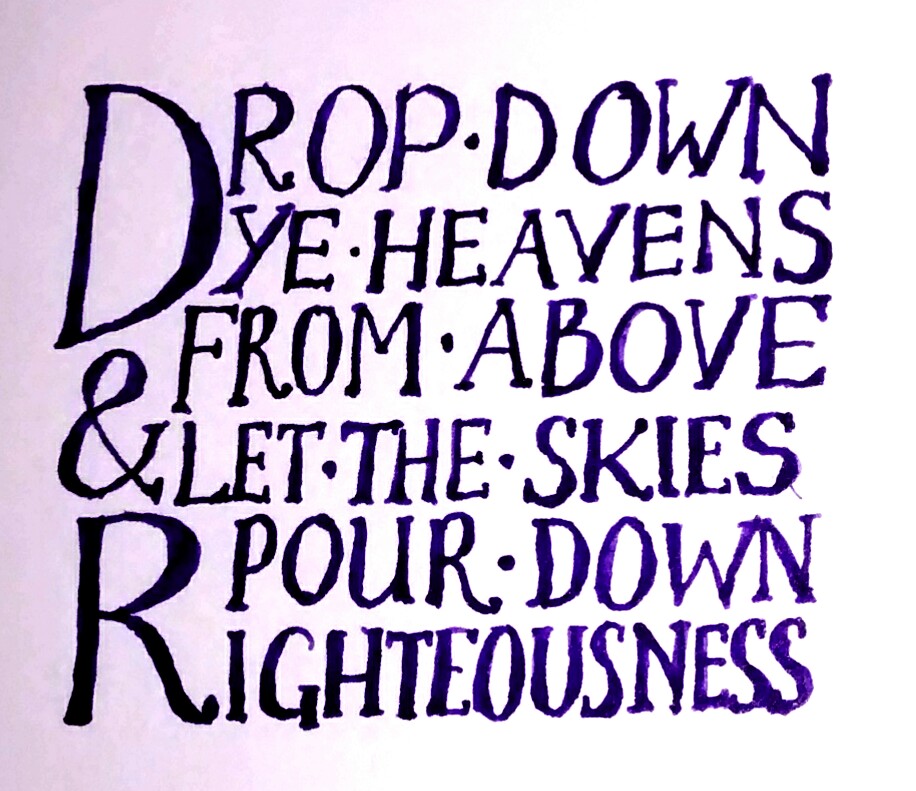 DROP·DOWN
YE·HEAVENS
FROM·ABOVE
& LET·THE·SKIES
POUR·DOWN
RIGHTEOUSNESS